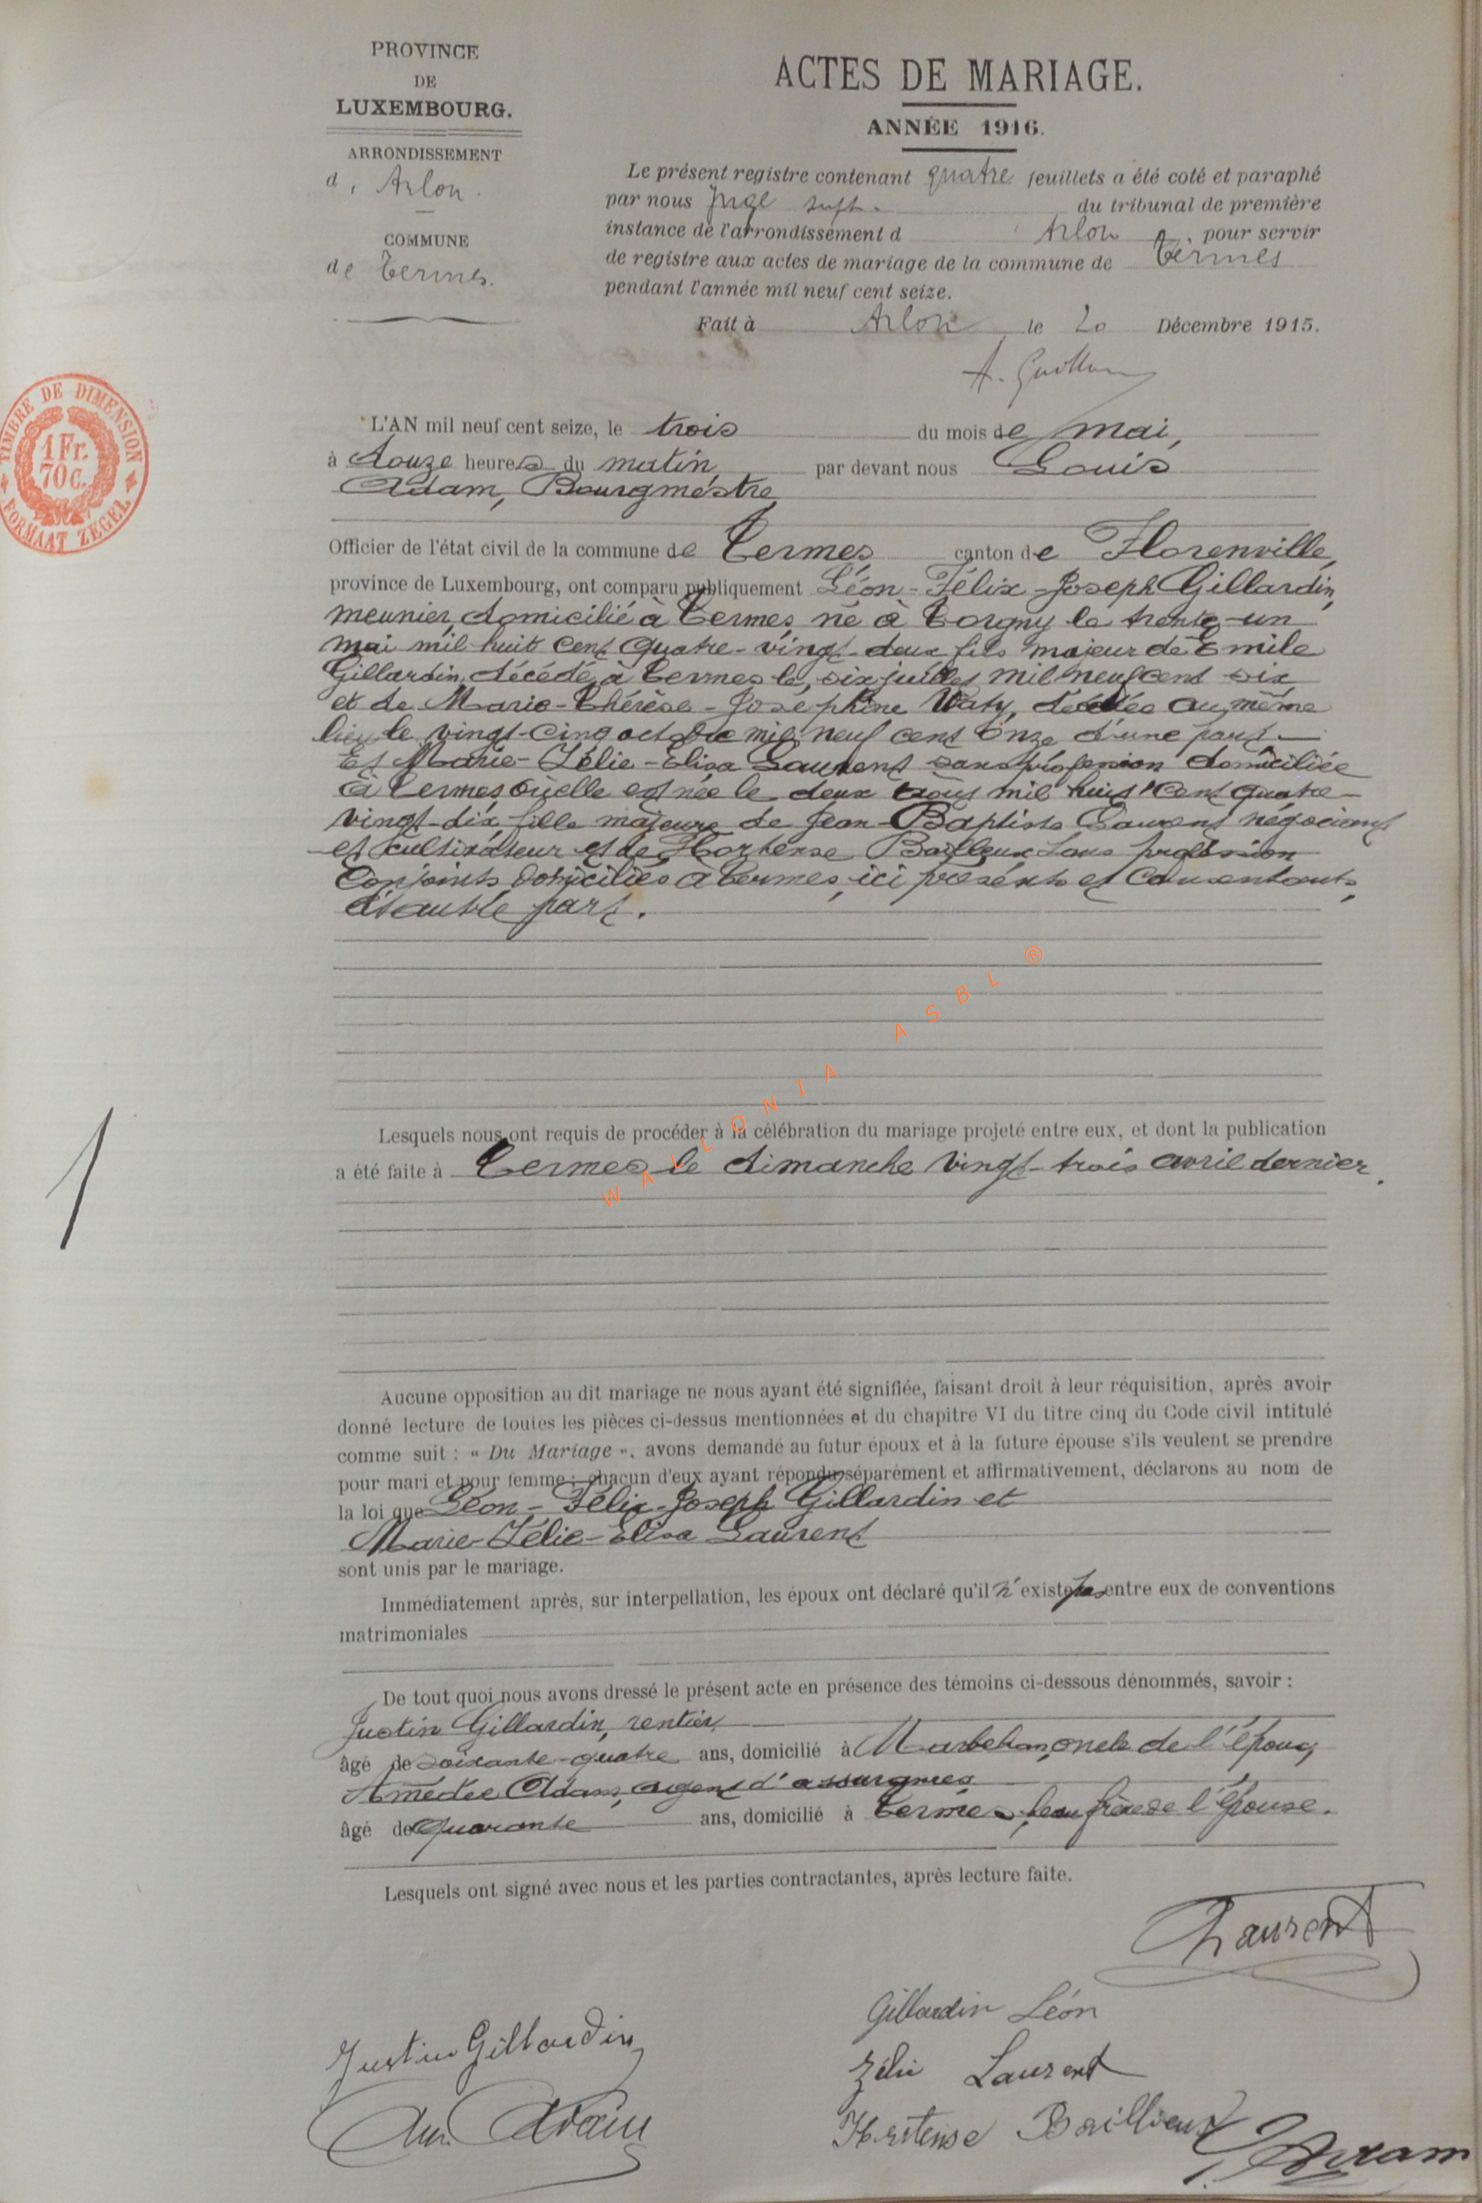 PROVINCE
DE
LUXEMBOURG.
ARRONDISSEMENT
d' Arlon.
COMMUNE
de Termes.
ACTES DE MARIAGE.
ANNÉE 1916.
Le présent registre contenant quatre feuillets a été coté et paraphé
par nous Juge supt. du tribunal de première
instance de l'arrondissement d Arlon, pour servir
de registre aux actes de mariage de la commune de Termes
pendant l'année mil neuf cent seize.
Fait à Arlon le 20 Décembre 1915.
TIMBRE DE DIMENSION
1 Fr.
70 C.
FORMAAT ZEGEL
L'AN mil neuf cent seize, le trois du mois de mai,
à douze heures du matin, par devant nous Louis
Adam, Bourgmestre
Officier de l'état civil de la commune de Termes, canton de Florenville,
province de Luxembourg, ont comparu publiquement Léon-Félix-Joseph Gillardin,
meunier, domicilié à Termes, né à Torgny le trente-un
mai mil huit cent quatre-vingt-deux fils majeur de Emile
Gillardin, décédé à Termes le six juillet mil neuf cent six
et de Marie-Thérèse-Joséphine Waty, décédée au même
lieu le vingt-cinq octobre mil neuf cent onze d'une part.
Et Marie-Zélie-Elisa Laurent sans profession domiciliée
à Termes où elle est née le deux août mil huit cent quatre-
vingt-dix fille majeure de Jean-Baptiste Laurent négociant
et cultivateur et de Hortense Bailleux sans profession
conjoints domiciliés à Termes, ici présents et consentants,
d'autre part.
WALLONIA ASBL ®
Lesquels nous ont requis de procéder à la célébration du mariage projeté entre eux, et dont la publication
a été faite à Termes le dimanche vingt-trois avril dernier.
1
Aucune opposition au dit mariage ne nous ayant été signifiée, faisant droit à leur réquisition, après avoir
donné lecture de toutes les pièces ci-dessus mentionnées et du chapitre VI du titre cinq du Code civil intitulé
comme suit : « Du Mariage », avons demandé au futur époux et à la future épouse s'ils veulent se prendre
pour mari et pour femme ; chacun d'eux ayant répondu séparément et affirmativement, déclarons au nom de
la loi que Léon-Félix-Joseph Gillardin et
Marie-Zélie-Elisa Laurent
sont unis par le mariage.
Immédiatement après, sur interpellation, les époux ont déclaré qu'il n'existe pas entre eux de conventions
matrimoniales
De tout quoi nous avons dressé le présent acte en présence des témoins ci-dessous dénommés, savoir :
Justin Gillardin, rentier,
âgé de soixante-quatre ans, domicilié à Marbehan, oncle de l'époux,
Amédée Adam, agent d'assurances
âgé de quarante ans, domicilié à Termes, beau frère de l'épouse.
Lesquels ont signé avec nous et les parties contractantes, après lecture faite.
Laurent
Gillardin Léon
Justin Gillardin
Zélie Laurent
Am. Adam
Hortense Baillieux
L. Adam